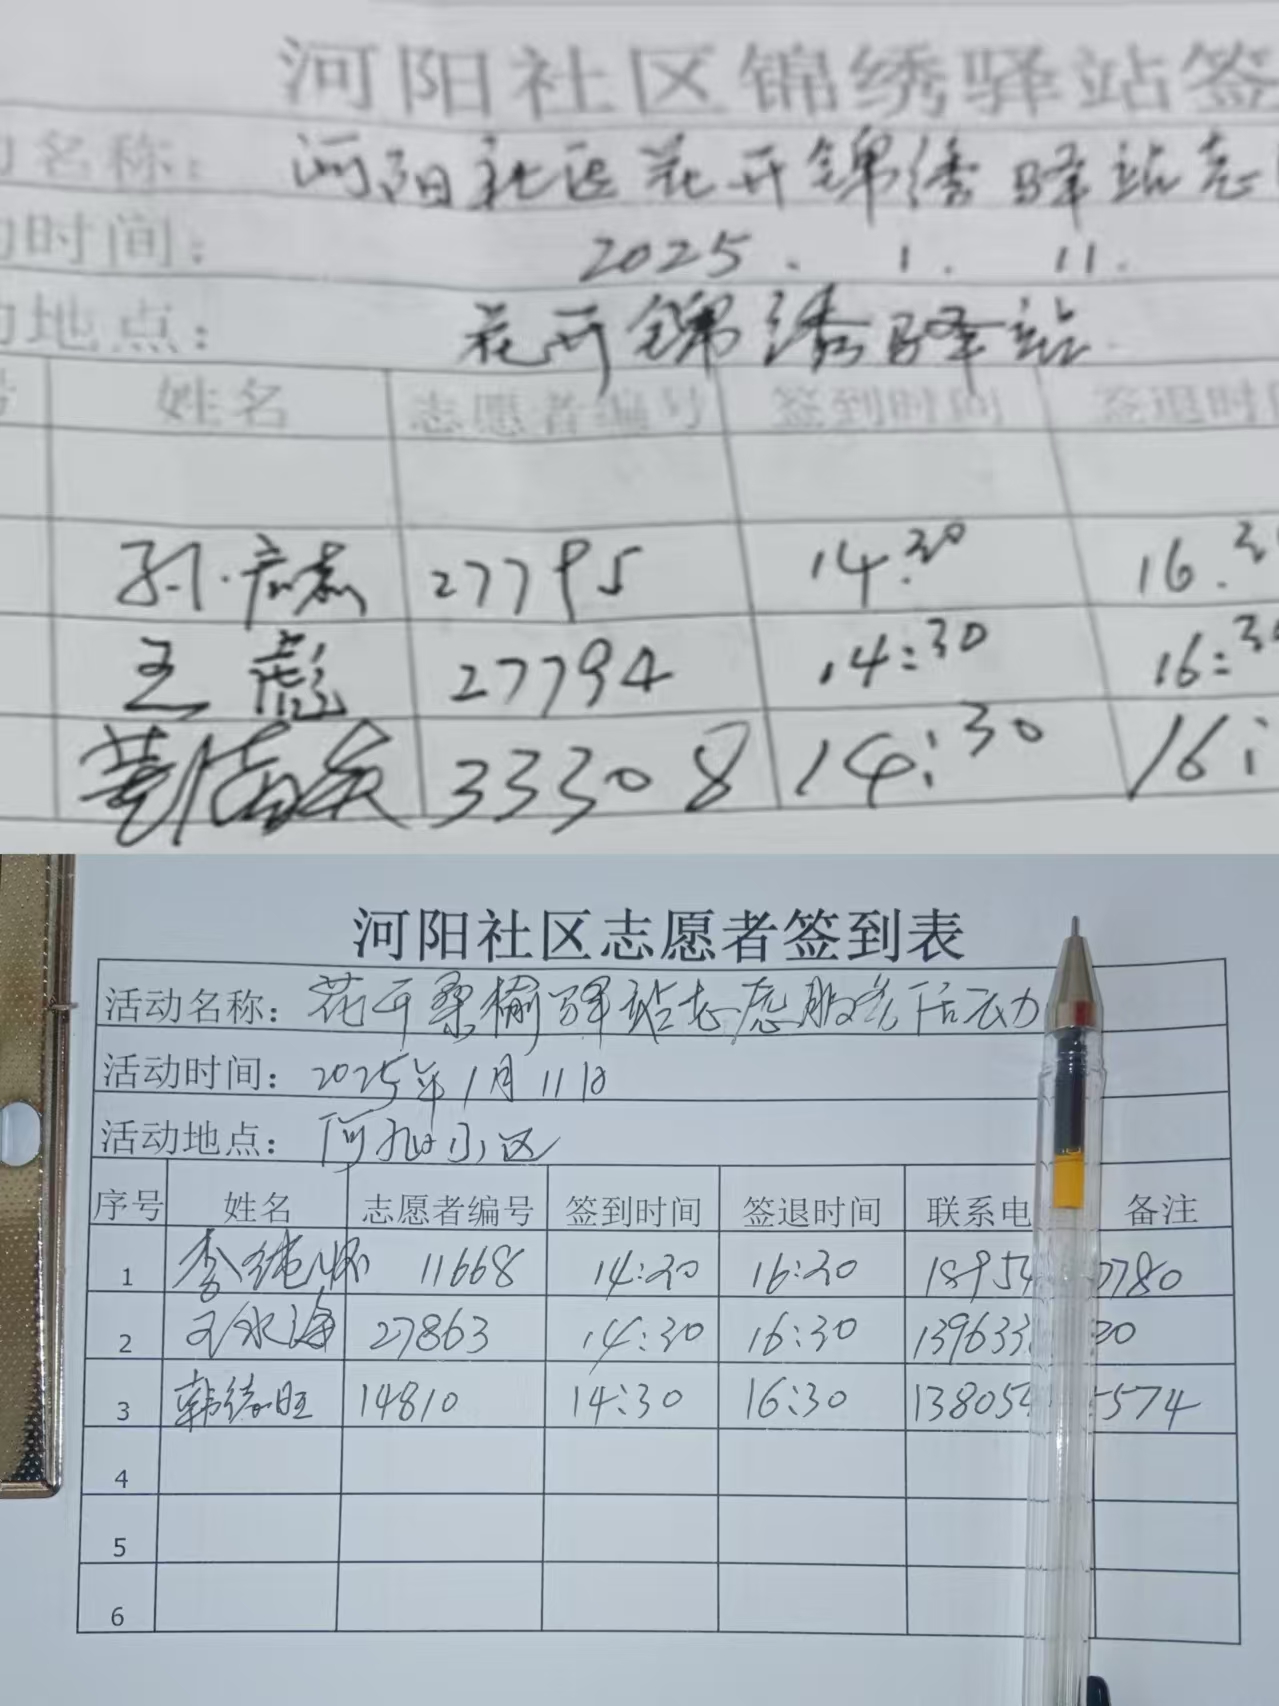 河阳社区锦绣驿站签
名称： 河阳社区花开锦绣驿站志
时间： 2025.1.11.
地点： 花开锦绣驿站
姓名 志愿者编号 签到时间 签退时
27795 14:30 16:3
王彪 27794 14:30 16:3
33308 14:30 16:
河阳社区志愿者签到表
活动名称：花开桑榆驿站志愿服务活动
活动时间：2025年1月11日
活动地点：河阳小区
序号 姓名 志愿者编号 签到时间 签退时间 联系电 备注
1 李 11668 14:30 16:30 18954 7780
2 王永海 27863 14:30 16:30 139633 30
3 韩绪旺 14810 14:30 16:30 138054 5574
4
5
6